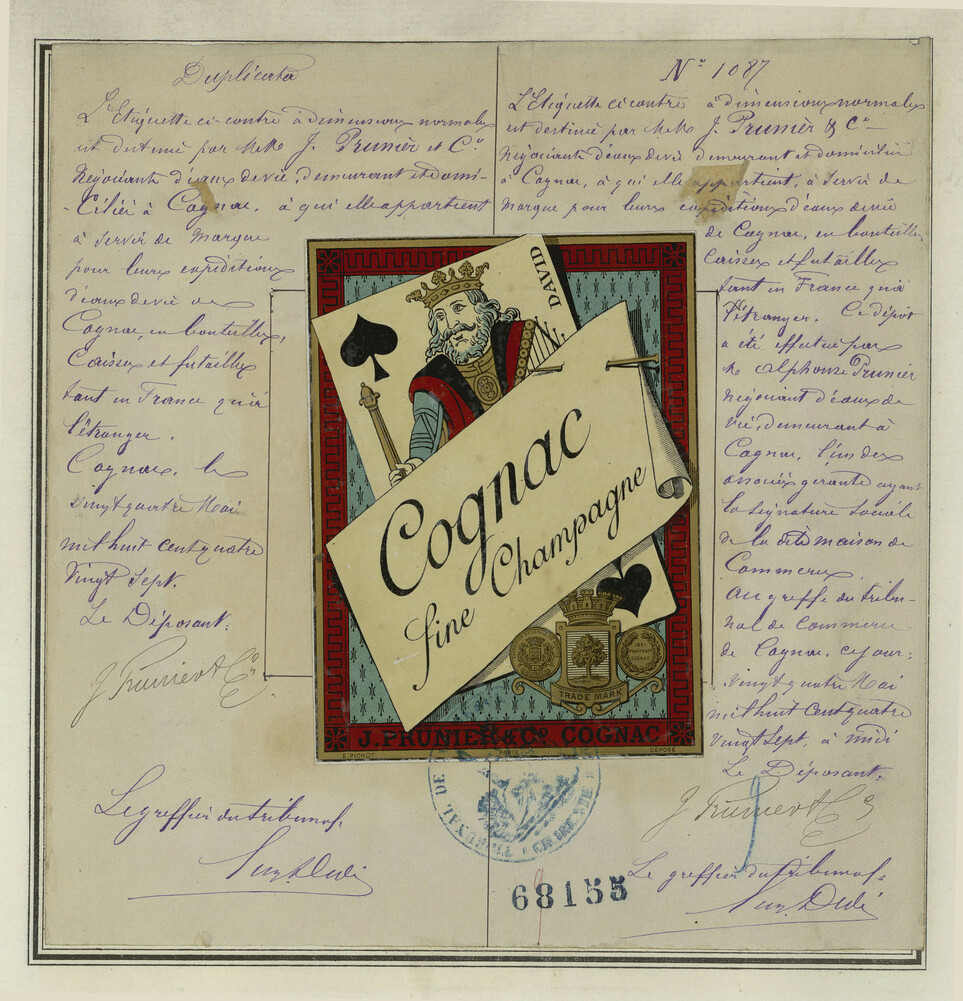 Duplicata
L'Etiquette ci-contre à dimensions normales
est destinée par MM. J. Prunier et Cie
Négociants d'eaux de vie, demeurant et domi-
-ciliés à Cognac, à qui elle appartient
à servir de marque
pour leurs expéditions
d'eaux de vie de
Cognac, en bouteilles,
Caisses et futailles
tant en France qu'à
l'étranger.
Cognac, le
vingt quatre Mai
mil huit cent quatre
vingt sept.
Le Déposant:
J. Prunier & Co
Le greffier du tribunal.
No 1087
L'Etiquette ci contre à dimensions normales
est destinée par MM. J. Prunier & Cie
Négociants d'eaux de vie demeurant et domiciliés
à Cognac, à qui elle appartient, à servir de
marque pour leurs expéditions d'eaux de vie
de Cognac, en bouteilles
Caisses et futailles
tant en France qu'à
l'étranger. Ce dépôt
a été effectué par
M. Alphonse Prunier
Négociant d'eaux de
vie, demeurant à
Cognac, l'un des
associés gérants ayant
la signature sociale
de la dite maison de
Commerce.
Au greffe du tribu-
nal de Commerce
de Cognac, ce jour,
vingt quatre Mai
mil huit cent quatre
vingt sept, à midi
Le Déposant.
J. Prunier & Co
Le greffier du tribunal.
DAVID
Cognac
fine Champagne
TRADE MARK
J. PRUNIER & Co. COGNAC
E. PICHOT
PARIS
DÉPOSÉ
TRIBUNAL DE
68155